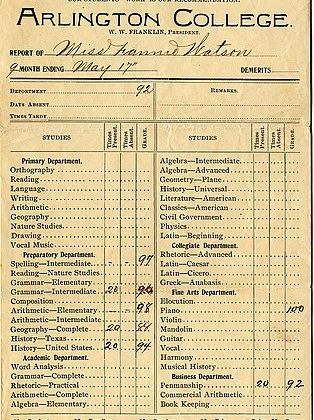 OUR STUDENTS' WORK IS OUR RECOMMENDATION.
ARLINGTON COLLEGE.
W. W. FRANKLIN, PRESIDENT.
REPORT OF Miss Fannie Watson
9 MONTH ENDING May 17" DEMERITS
DEPORTMENT 92
DAYS ABSENT
TIMES TARDY
REMARKS.
STUDIES Times Present. Times Absent. GRADE.
Primary Department.
Orthography
Reading
Language
Writing
Arithmetic
Geography
Nature Studies
Drawing
Vocal Music
Preparatory Department.
Spelling—Intermediate - - 97
Reading—Nature Studies
Grammar—Elementary
Grammar—Intermediate 20
Composition
Arithmetic—Elementary - - 98
Arithmetic—Intermediate
Geography—Complete 20 84
History—Texas
History—United States 20 94
Academic Department.
Word Analysis
Grammar—Complete
Rhetoric—Practical
Arithmetic—Complete
Algebra—Elementary
STUDIES Times Present. Times Absent. GRADE.
Algebra—Intermediate
Algebra—Advanced
Geometry—Plane
History—Universal
Literature—American
Classics—American
Civil Government
Physics
Latin—Beginning
Collegiate Department.
Rhetoric—Advanced
Latin—Caesar
Latin—Cicero
Greek—Anabasis
Fine Arts Department.
Elocution
Piano 100
Violin
Mandolin
Guitar
Vocal
Harmony
Musical History
Business Department.
Penmanship 20 92
Commercial Arithmetic
Book Keeping